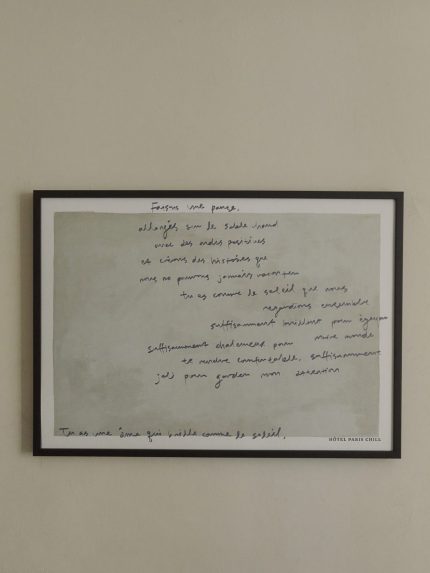 Faisons une pause.
allongés sur le sable chaud
avec des ondes positives
et créons des histoires que
nous ne pourrons jamais raconter
tu as comme le soleil que nous
regardions ensemble
suffisamment brillant pour égayer
suffisamment chaleureux pour notre monde
te rendre confortable, suffisamment
joli pour garder mon attention
Tu as une âme qui brille comme le soleil.
HÔTEL PARIS CHILL